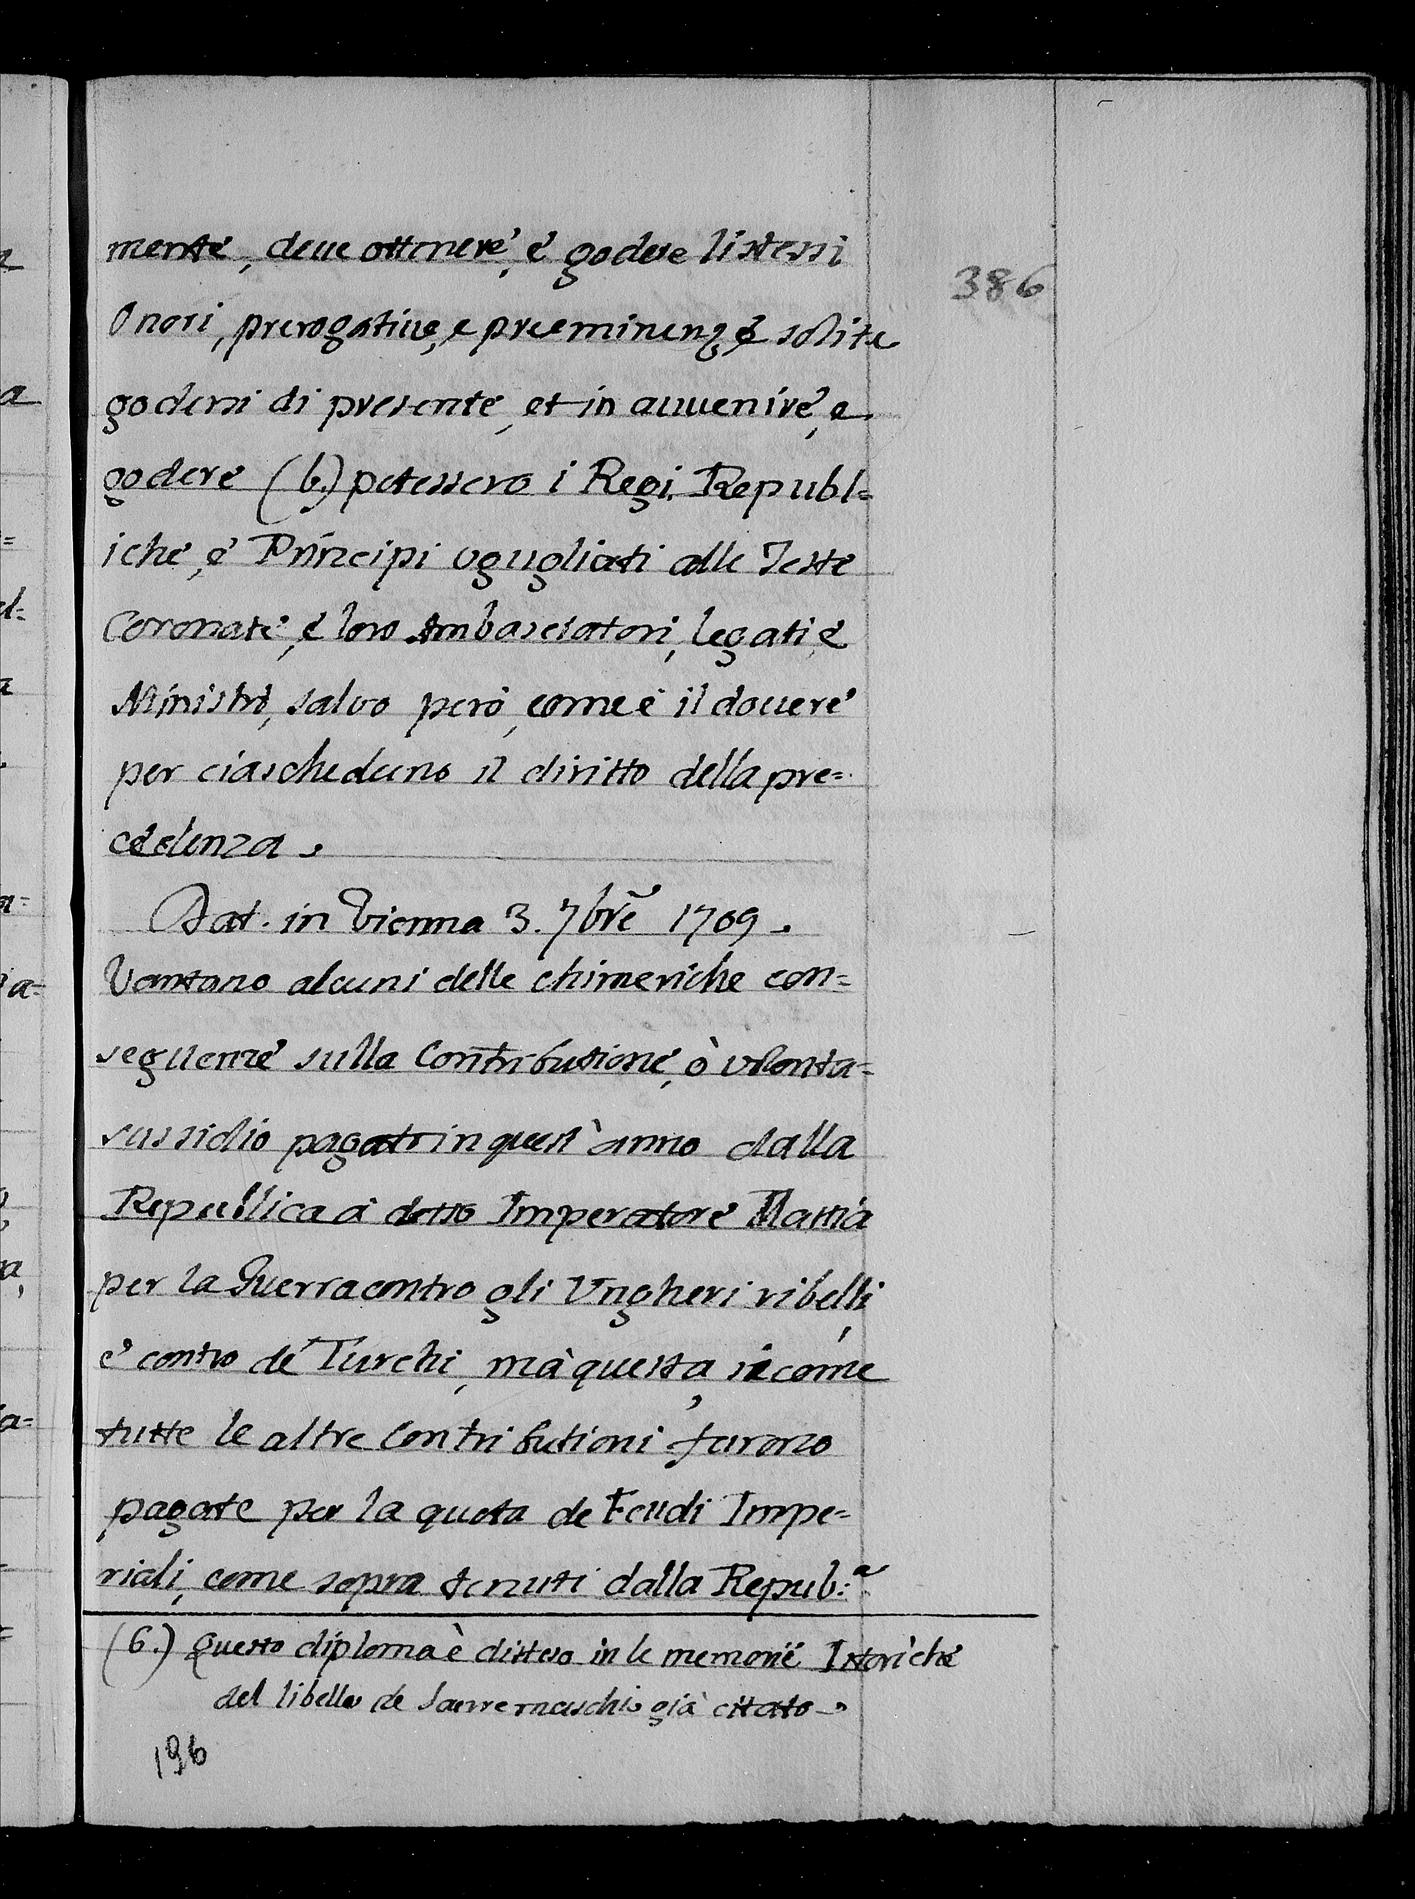 mente, deue ottenere, è godere listessi
386
Onori, prerogatiue, e preeminenze solite
godersi di presente, et in auuenire, e
godere (b.) potessero i Regi, Republ=
iche, è Principi vgugliati alle Teste
Coronate, è loro Ambasciatori, legati, è
Ministri, saluo però, come è il douere
per ciascheduno il diritto della pre=
cedenza.
Dat. in Vienna 3. 7bre 1709.
Vantano alcuni delle chimeriche con=
seguenze sulla Contributione, ò volonta=
sussidio pagato in quest'anno dalla
Republica à detto Imperatore Mattia
per la Guerra contro gli Vngheri ribelli,
è contro de Turchi, mà questa, sicome
tutte le altre Contributioni furono
pagate per la quota de Feudi Impe=
riali, come sopra tenuti dalla Repub:a
(6.) Questo diploma è disteso in le memorie Istoriche
del libello de già citato.
196